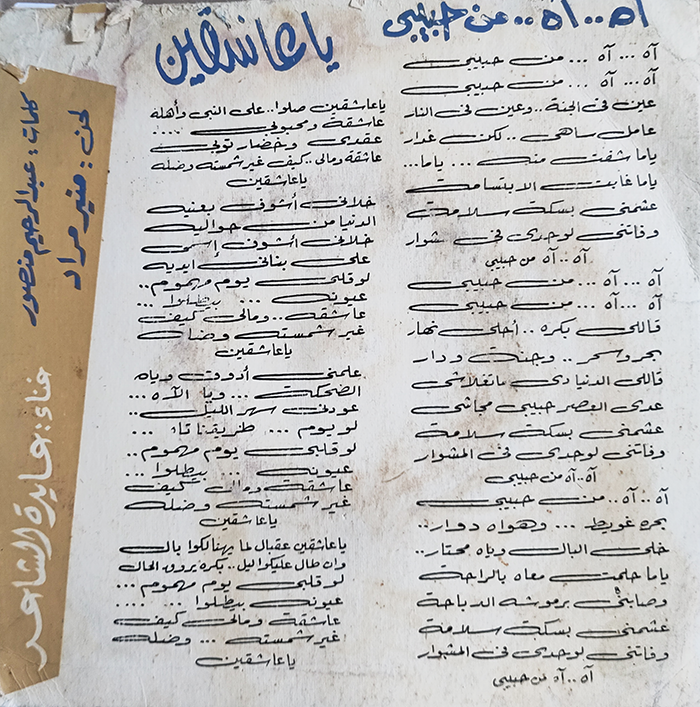 آه .. آه .. من حبيبي
آه ... آه ... من حبيبي
آه ... آه ... من حبيبي
عين فى الجنة .. وعين فى النار
عامل ساهى .. لكن غدار
ياما شفت منه ... ياما ...
ياما غابت الابتسامة
عشمنى بسكة سلامة
وفاتنى لوحدى فى مشوار
آه .. آه من حبيبي
آه ... آه ... من حبيبي
آه ... آه ... من حبيبي
قاللى بكره .. أحلى نهار
بحر وسحر .. وجنة ودار
قاللى الدنيا دى ماتغلاشى
عدى العصر حبيبي مجاشى
عشمنى بسكة سلامة
وفاتنى لوحدى فى المشوار
آه .. آه من حبيبي
آه .. آه .. من حبيبي
بحره غويط ... وهواه دوار ..
خلى البال وياه محتار ..
ياما حلمت معاه بالراحة
وصابنى برموشه الدباحة
عشمنى بسكة سلامة
وفاتنى لوحدى فى المشوار
آه .. آه من حبيبي
ياعاشقين
ياعاشقين صلوا .. على النبى وأهله
عاشقة ومحبوبى ....
عقدى وخضار توبى
عاشقة ومالى .. كيف غير شمسته وضله
ياعاشقين
خلانى أشوف بعنيه
الدنيا من حواليه
خلانى أشوف إسمى
على بنانى أيديه
لو قلبى يوم مهموم ..
عيونه ... بيطلوا ...
عاشقة .. ومالى كيف
غير شمسته وضله
ياعاشقين
علمنى أدوق وياه
الضحكة ... ويا الآه ...
عودنى سهر الليل ..
لو يوم ... طريقنا تاه ...
لو قلبى يوم مهموم ..
عيونه ... بيطلوا ...
عاشقة ومالى كيف
غير شمسته وضله
ياعاشقين
ياعاشقين عقبال لما يهنالكوا بال
وان طال عليكوا ليل .. بكره يروق الحال
لو قلبى يوم مهموم ...
عيونه بيطلوا ... ....
عاشقة ومالى كيف
غير شمسته ... وضله
ياعاشقين
لحن : منير مراد
كلمات : عبد الرحيم منصور
غناء : عايدة الشاعر